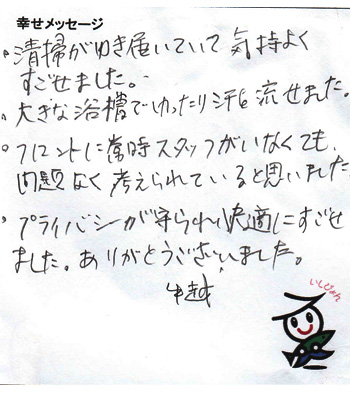 幸せメッセージ
。清掃がゆき届いていて気持よく
すごせました。
。大きな浴槽でゆったり汗も流せました。
。フロントに常時スタッフがいなくても、
問題なく考えられていると思いました
。プライバシーが守られ快適にすごせ
ました。ありがとうございました。
中越
いしじょん